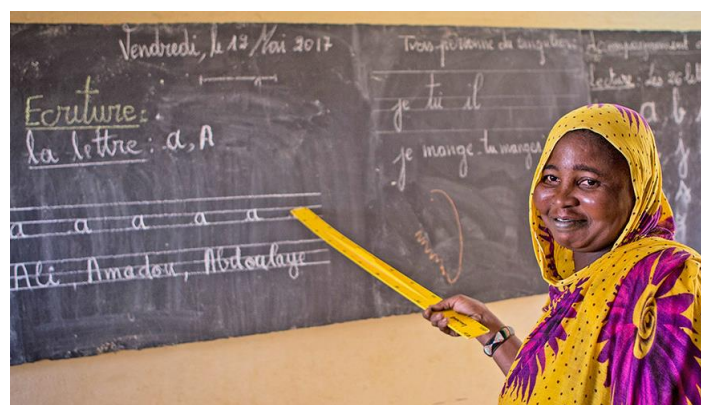 Vendredi, le 12 Mai 2017
Ecriture:
la lettre: a, A
a a a a a
Ali, Amadou, Abdoulaye
Trois personne du singulier:
je tu il
je mange - tu manges
Lecture: Les 26
a, b,